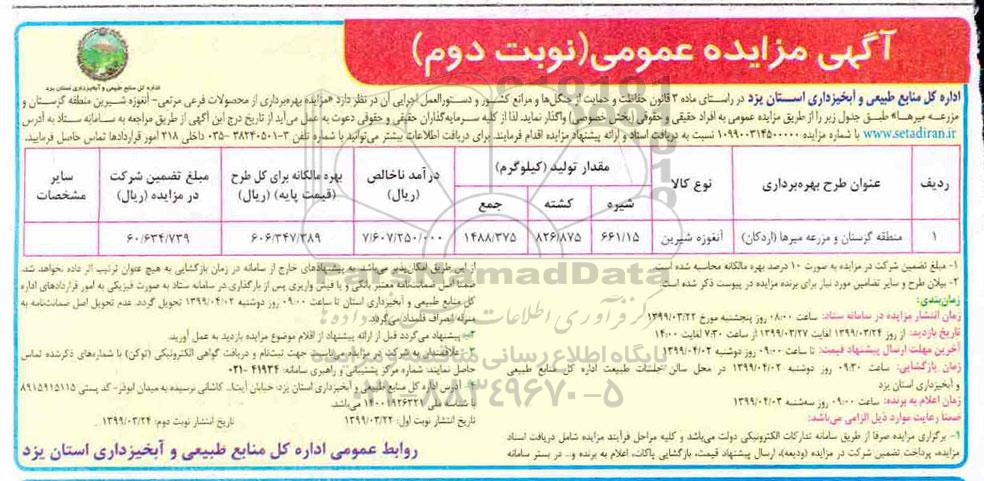 آگهی مزایده عمومی(نوبت دوم)
اداره کل منابع طبیعی و آبخیزداری استان یزد
اداره کل منابع طبیعی و آبخیزداری استان یزد در راستای ماده ۳ قانون حفاظت و حمایت از جنگل‌ها و مراتع کشور و دستورالعمل اجرایی آن در نظر دارد «مزایده بهره‌برداری از محصولات فرعی مرتعی- آنغوزه شیرین منطقه گزستان و
مزرعه میرها» طبق جدول زیر را از طریق مزایده عمومی به افراد حقیقی و حقوقی (بخش خصوصی) واگذار نماید. لذا از کلیه سرمایه‌گذاران حقیقی و حقوقی دعوت به عمل می‌آید از تاریخ درج این آگهی از طریق مراجعه به سامانه ستاد به آدرس
www.setadiran.ir با شماره مزایده ۱۰۹۹۰۰۳۱۴۵۰۰۰۰۰ نسبت به دریافت اسناد و ارائه پیشنهاد مزایده اقدام فرمایند. برای دریافت اطلاعات بیشتر می‌توانید با شماره تلفن ۳-۳۸۲۴۰۵۰۱-۰۳۵ داخلی ۲۱۸ امور قراردادها تماس حاصل فرمایید.
ردیف | عنوان طرح بهره‌برداری | نوع کالا | مقدار تولید (کیلوگرم) | درآمد ناخالص (ریال) | بهره مالکانه برای کل طرح (قیمت پایه) (ریال) | مبلغ تضمین شرکت در مزایده (ریال) | سایر مشخصات
شیره | کشته | جمع
۱ | منطقه گزستان و مزرعه میرها (اردکان) | آنغوزه شیرین | ۶۶۱/۱۵ | ۸۲۶/۸۷۵ | ۱۴۸۸/۳۷۵ | ۷/۶۰۷/۲۵۰/۰۰۰ | ۶۰۶/۳۴۷/۳۸۹ | ۶۰/۶۳۴/۷۳۹
۱- مبلغ تضمین شرکت در مزایده به صورت ۱۰ درصد بهره مالکانه محاسبه شده است.
۲- بیلان طرح و سایر تضامین مورد نیاز برای برنده مزایده در پیوست ذکر شده است.
زمان‌بندی:
زمان انتشار مزایده در سامانه ستاد: ساعت ۰۸:۰۰ روز پنجشنبه مورخ ۱۳۹۹/۰۳/۲۲
تاریخ بازدید: از روز ۱۳۹۹/۰۳/۲۴ لغایت ۱۳۹۹/۰۳/۲۷ از ساعت ۷:۳۰ لغایت ۱۴:۰۰
آخرین مهلت ارسال پیشنهاد قیمت: تا ساعت ۰۹:۰۰ روز دوشنبه ۱۳۹۹/۰۴/۰۲
زمان بازگشایی: ساعت ۰۹:۳۰ روز دوشنبه ۱۳۹۹/۰۴/۰۲ در محل سالن جلسات طبیعت اداره کل منابع طبیعی
و آبخیزداری استان یزد
زمان اعلام به برنده: ساعت ۰۹:۰۰ روز سه‌شنبه ۱۳۹۹/۰۴/۰۳
ضمناً رعایت موارد ذیل الزامی می‌باشد:
۱- برگزاری مزایده صرفاً از طریق سامانه تدارکات الکترونیکی دولت می‌باشد و کلیه مراحل فرآیند مزایده شامل دریافت اسناد
مزایده، پرداخت تضمین شرکت در مزایده (ودیعه)، ارسال پیشنهاد قیمت، بازگشایی پاکات، اعلام به برنده و.. در بستر سامانه
از این طریق امکان‌پذیر می‌باشد. به پیشنهادهای خارج از سامانه در زمان بازگشایی به هیچ عنوان ترتیب اثر داده نخواهد شد.
ضمناً اصل ضمانتنامه معتبر بانکی و یا فیش واریزی پس از بارگذاری در سامانه ستاد به صورت فیزیکی به امور قراردادهای اداره
کل منابع طبیعی و آبخیزداری استان تا ساعت ۰۹:۰۰ روز دوشنبه ۱۳۹۹/۰۴/۰۲ تحویل گردد. عدم تحویل اصل ضمانت‌نامه به
منزله انصراف قلمداد می‌گردد.
۲- پیشنهاد می‌گردد قبل از ارائه پیشنهاد از اقلام موضوع مزایده بازدید به عمل آورید.
۳- علاقمندان به شرکت در مزایده می‌بایست جهت ثبت‌نام و دریافت گواهی الکترونیکی (توکن) با شماره‌های ذکرشده تماس
حاصل نمایند: شماره مرکز پشتیبانی و راهبری سامانه: ۴۱۹۳۴-۰۲۱
۴- آدرس اداره کل منابع طبیعی و آبخیزداری استان یزد: خیابان آیت‌ا... کاشانی نرسیده به میدان ابوذر- کد پستی ۸۹۱۵۹۱۵۱۱۵
با شناسه ملی ۱۴۰۰۱۹۲۶۳۲۱ می‌باشد.
تاریخ انتشار نوبت اول: ۱۳۹۹/۰۳/۲۲ تاریخ انتشار نوبت دوم: ۱۳۹۹/۰۳/۲۴
روابط عمومی اداره کل منابع طبیعی و آبخیزداری استان یزد
NamadData
پایگاه اطلاع رسانی مناقصه و مزایده
۰۲۱-۸۸۳۴۹۶۷۰-۵